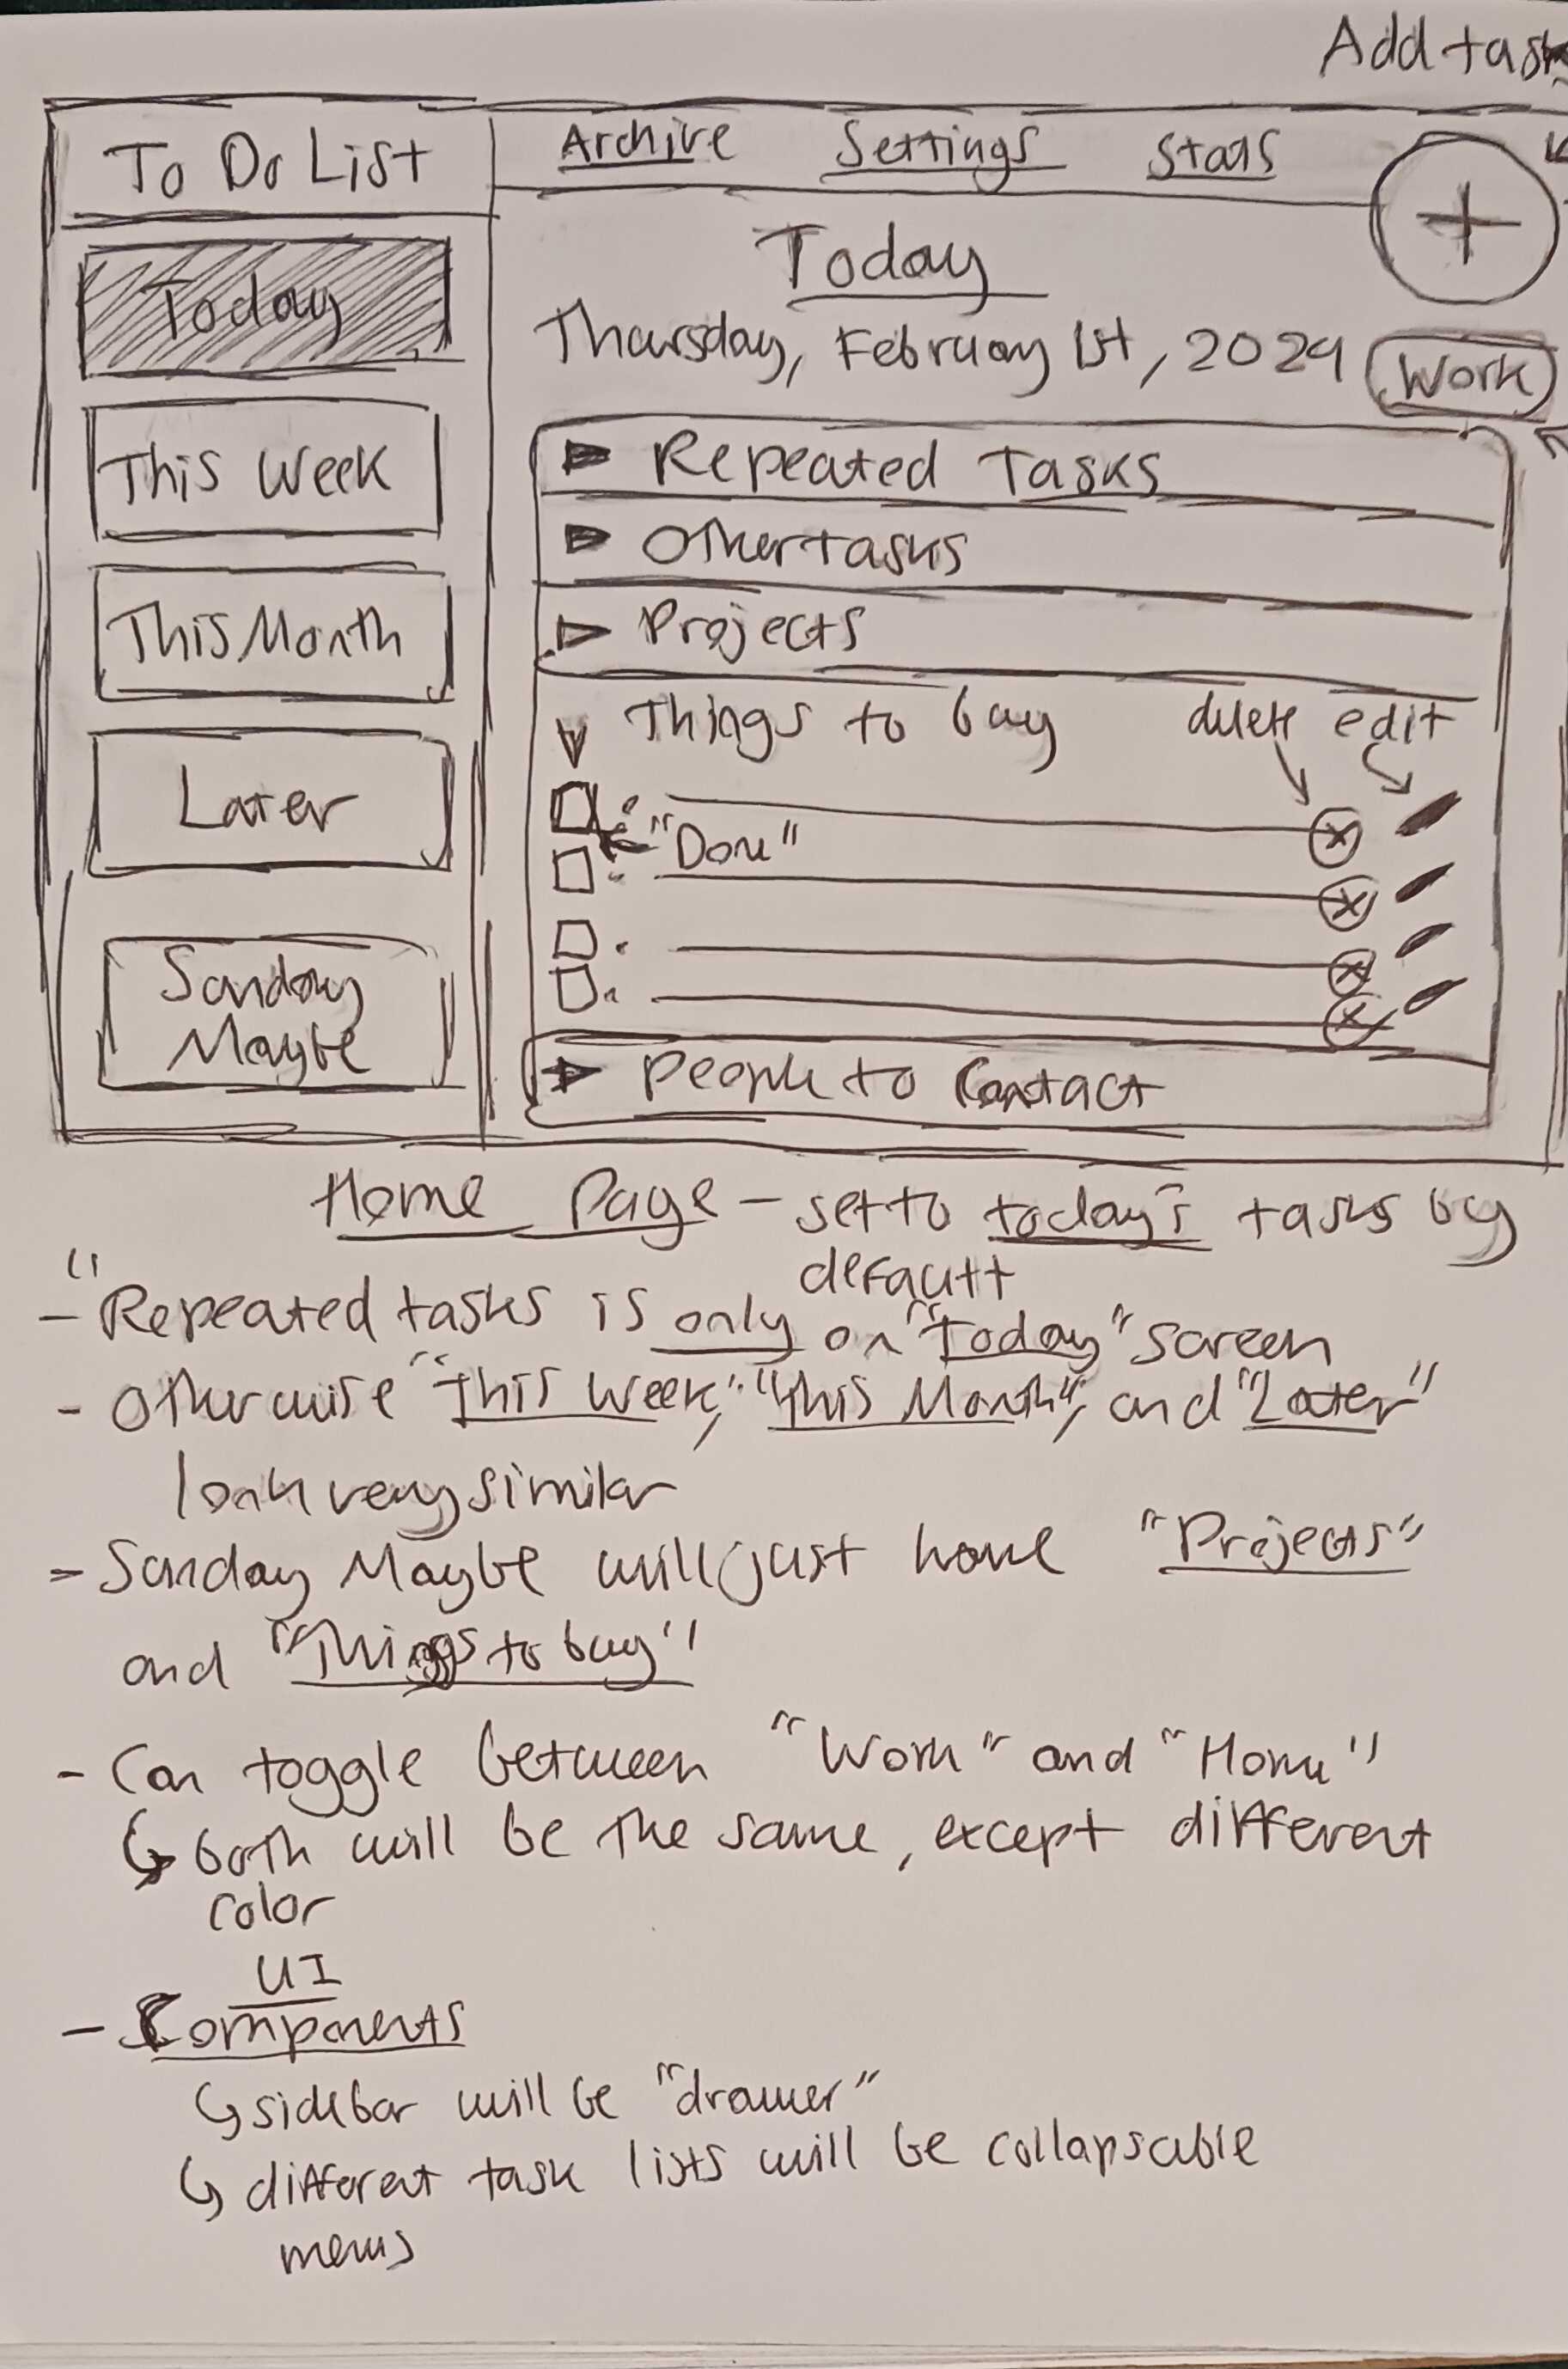 Add task
To Do List
Archive Settings Stats
+
Today
Today
Thursday, February 1st, 2024
Work
This Week
Repeated Tasks
Other tasks
This Month
Projects
Things to buy
delete edit
Later
"Done"
Sunday
Maybe
People to Contact
Home Page - set to today's tasks by
default
- "Repeated tasks is only on "Today" screen
- Otherwise "This Week," "This Month", and "Later"
look very similar
- Sunday Maybe will just have "Projects"
and "Things to buy"
- Can toggle between "Work" and "Home"
↳ both will be the same, except different
color
UI
- Components
↳ sidebar will be "drawer"
↳ different task lists will be collapsable
menus